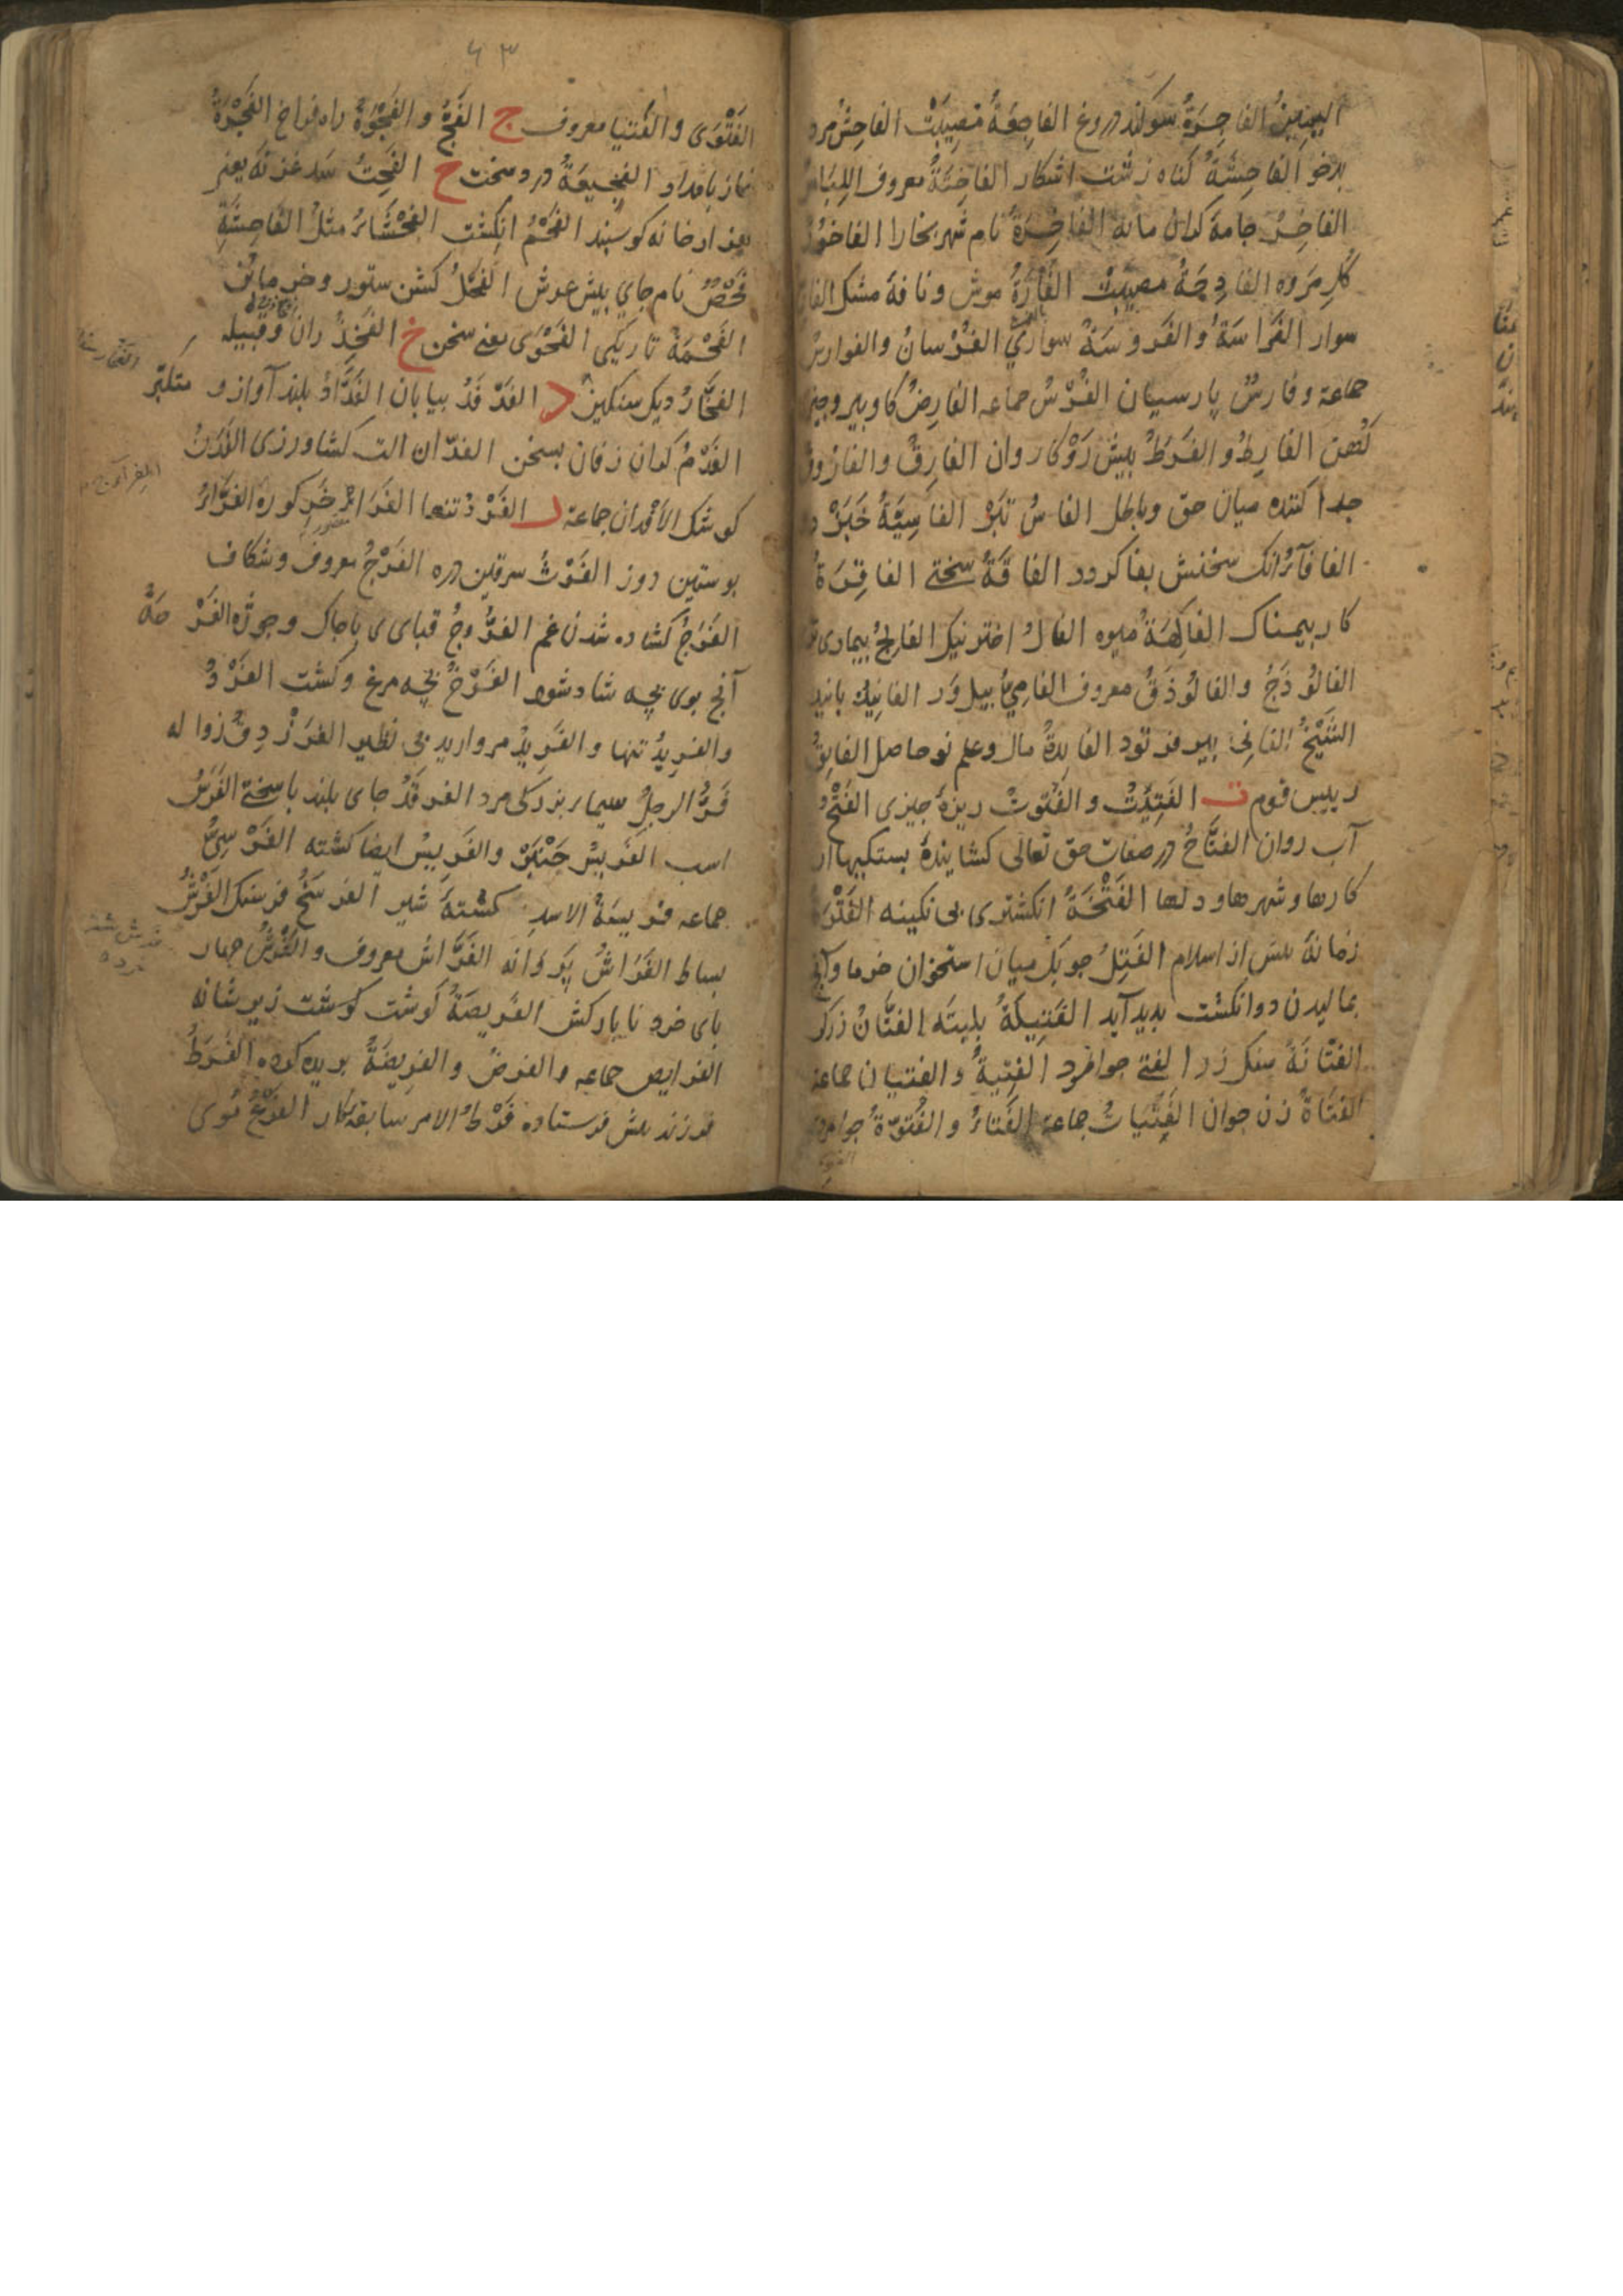 الیمین الفاجرة سوکند دروغ الفاجعة مصیبت الفاحش مرد
بدخو الفاحشة کناه زشت اشکار الفاختة معروف اللباس
الفاخر جامهٔ کران مایه الفاخرة نام شهر بخارا الفاخور
کل مروه الفادحة مصیبت الفارة موش و نافهٔ مشک الفارس
سوار الفراسة والفروسة سواری الفرسان والفوارس
جماعة وفارس پارسیان الفرس جماعه الفارض کاو پیر و چیز
کهن الفارط والفرط پیش رو کاروان الفارق والفاروق
جدا کننده میان حق وباطل الفاس تبر الفاسیة
الفافآء انک سخنش بفا کردد الفاقة سختی الفاقرة
کار بیمناک الفاکهة میوه الفال اختر نیک الفالج بیماری
الفالوذج والفالوذق معروف الفامی بیل ور الفانیذ پانید
الشیخ الفانی پیر فرتود الفایدة مال وعلم نو حاصل الفایق
رییس قوم ت الفتیت والفتوت ریزهٔ چیزی الفتح
آب روان الفتاح در صفات حق تعالی کشایندهٔ بستکیها از
کارها وشهرها ودلها الفتخة انکشتری بی نکینه الفترة
زمانهٔ پیش از اسلام الفتیل چوبک میان استخوان خرما وآنچ
بمالیدن دو انکشت پدید آید الفتیلة پلیته الفتان زرکر
الفتانة سنک زر الفتی جوامرد الفتیة والفتیان جماعة
الفتاة زن جوان الفتیات جماعة الفتاء والفتوة جوامردی
الفتوی
۶۳
الفتوی والفتیا معروف ج الفج والفجوة راه فراخ الفجوة
نماز بامداد الفجیعة درد سخت ح الفحث
بعد از خانه کوسپند الفحم انکشت الفحشاء مثل الفاحشة
فحص نام جای پیش عرش الفحل کشن ستور وخرما بن
الفحمة تاریکی الفحوی معنی سخن خ الفخذ ران وقبیله
الفخار دیک سنکین د الفدفد بیابان الفداد بلند آواز و متکبر
الفدم کران زفان بسخن الفدان الت کشاورزی الفدن
کوشک الافدان جماعة ر الفرد تنها الفراء خر کوره الفراء
پوستین دوز الفرث سرقین دره الفرج معروف وشکاف
الفرج کشاده شدن غم الفروج قبای با چاک وجوژه الفرحة
آنچ بوی بچه شاد شود الفرخ بچه مرغ وکشت الفرد
والفرید تنها والفرید مروارید بی نظیر الفرز
فر الرجل سیما بزرکی مرد الفرقد جای بلند با سختی الفرس
اسب الفریس چنبر والفریس ایضا کشته الفرسی
جماعه فریسة الاسد کشتهٔ شیر الفرسخ فرسنک الفرش
بساط الفراش پروانه الفراش معروف والفرش چهار
پای خرد نابارکش الفریصة کوشت کوشت زیر شانه
الفرایص جماعه والفرض والفریضة بریده کرده الفرط
فرزند پیش فرستاده فرط الامر سابقه کار الفرع موی